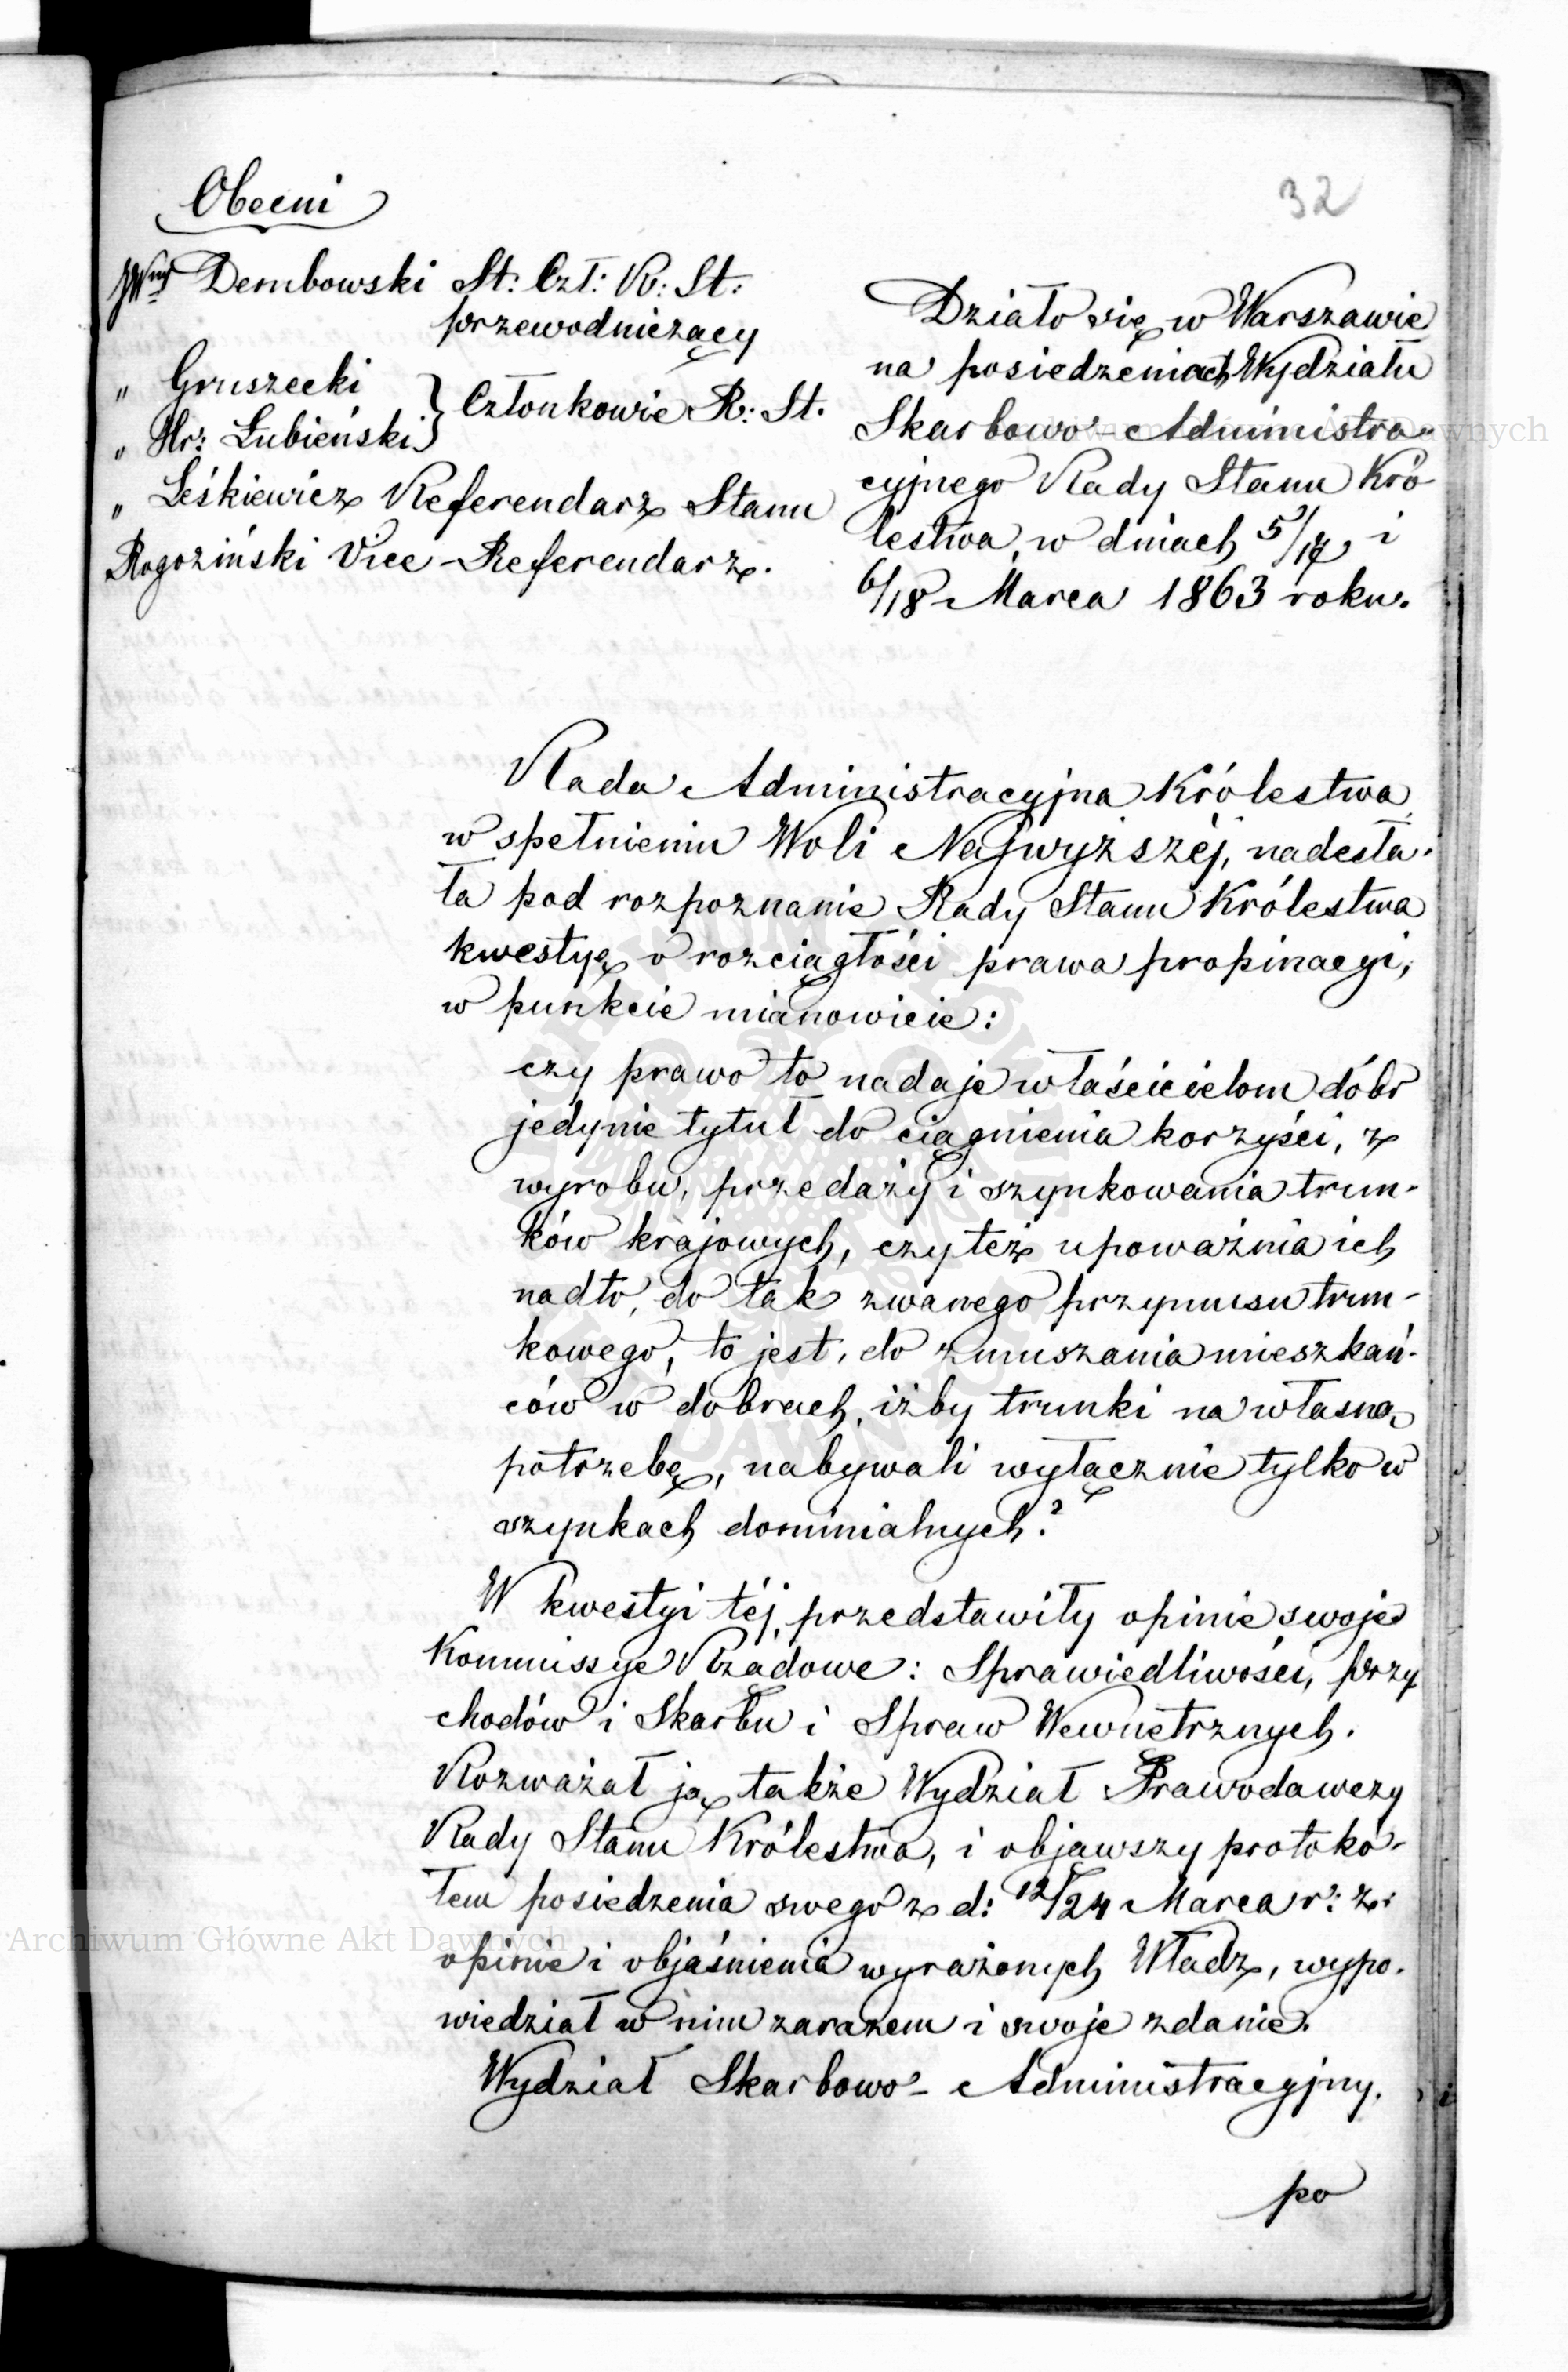 32
Obecni
JWny Dembowski St: Czł: R: St:
przewodniczący
" Gruszecki
" Hr: Łubieński } Członkowie R: St.
" Leśkiewicz Referendarz Stanu
Rogoziński Vice-Referendarz.
Działo się w Warszawie
na posiedzeniach Wydziału
Skarbowo-Administra-
cyjnego Rady Stanu Kró-
lestwa, w dniach 5/17, i
6/18 Marca 1863 roku.
Rada Administracyjna Królestwa
w spełnieniu Woli Najwyższéj, nadesła-
ła pod rozpoznanie Rady Stanu Królestwa
kwestyę o rozciągłości prawa propinacyi,
w punkcie mianowicie:
czy prawo to nadaje właścicielom dóbr
jedynie tytuł do ciągnienia korzyści, z
wyrobu, przedaży i szynkowania trun-
ków krajowych, czy też upoważnia ich
nadto, do tak zwanego przymusu trun-
kowego, to jest, do zmuszania mieszkań-
ców w dobrach, iżby trunki na własną
potrzebę, nabywali wyłącznie tylko w
szynkach dominialnych?
W kwestyi téj, przedstawiły opinie swoje
Kommissye Rządowe: Sprawiedliwości, Przy
chodów i Skarbu i Spraw Wewnętrznych.
Rozważał ją także Wydział Prawodawczy
Rady Stanu Królestwa, i objąwszy protokó-
łem posiedzenia swego z d: 12/24 Marca r: z:
opinie i objaśnienia wyrażonych Władz, wypo-
wiedział w nim zarazem i swoje zdanie.
Wydział Skarbowo-Administracyjny,
po
Archiwum Główne Akt Dawnych